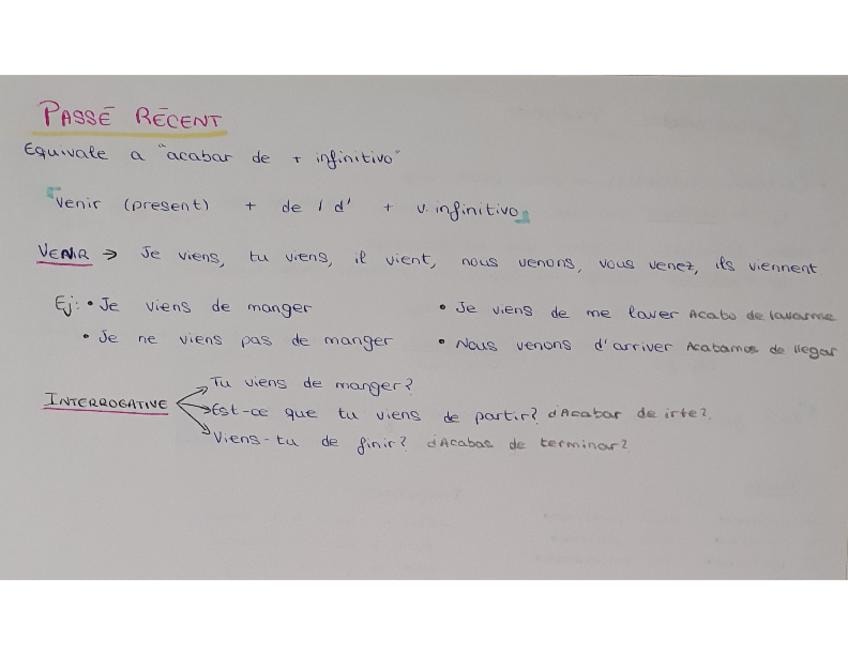 PASSÉ RÉCENT
Equivale a "acabar de + infinitivo"
Venir (present) + de / d' + v. infinitivo
VENIR → Je viens, tu viens, il vient, nous venons, vous venez, ils viennent
Ej: • Je viens de manger • Je viens de me laver Acabo de lavarme
• Je ne viens pas de manger • Nous venons d'arriver Acabamos de llegar
Tu viens de manger?
INTERROGATIVE Est-ce que tu viens de partir? ¿Acabar de irte?
Viens-tu de finir? ¿Acabas de terminar?